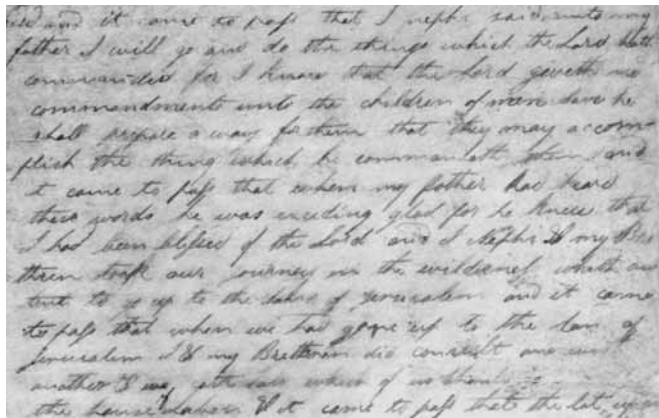 and it came to pass that I nephi said unto my
father I will go and do the things which the Lord hath
commanded for I know that the Lord giveth no
commandments unto the children of men save he
shall prepare a way for them that they may accom
plish the thing which he commandeth them and
it came to pass that when my father had heard
these words he was exceding glad for he knew that
I had been blessed of the Lord and I Nephi & my Bre
thren took our journey in the wilderness with our
tent to go up to the land of Jerusalem and it came
to pass that when we had gone up to the lan of
Jerusalem I & my Brethren did consult one with
another & we lots which of us should
the house Laban & it came to pass that the lot